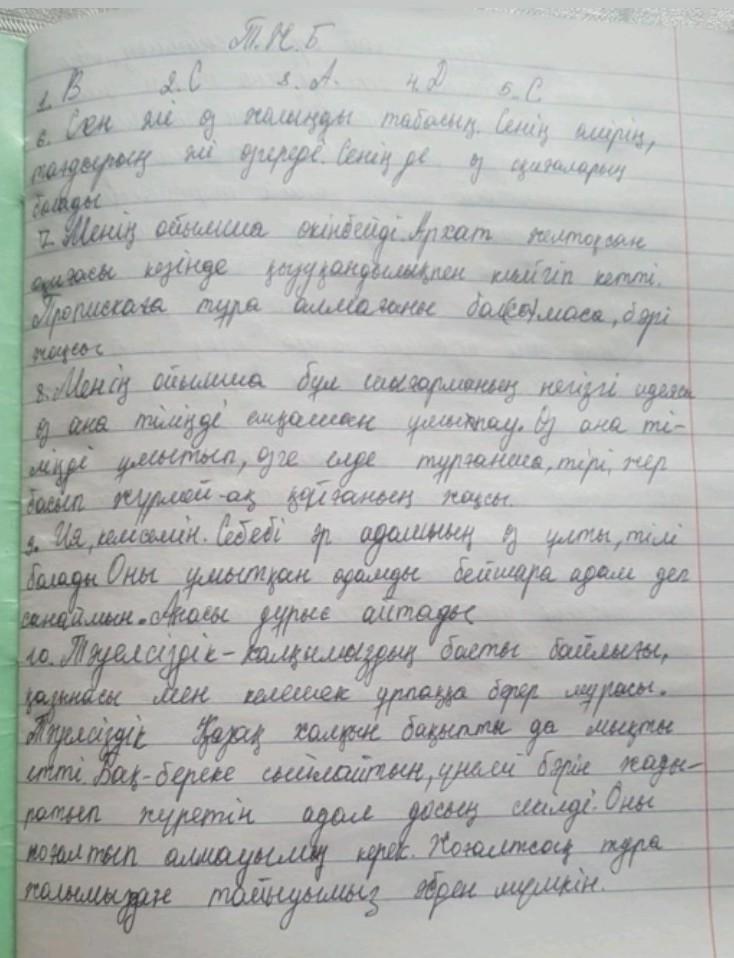 Т.Ж.Б
1. В 2. С 3. А. 4. Д 5. С
6. Сен әлі өз жолыңды табасың. Сенің өмірің,
тағдырың әлі өзгереді. Сенің де өз оқиғаларың
болады
7. Менің ойымша өкінбейді. Архат желтоқсан
оқиғасы кезінде қызуқандылықпен кетті.
Пропискаға тұра алмағаны болмаса, бәрі
жақсы
8. Менің ойымша бұл шығарманың негізгі идеясы
өз ана тіліңді ешқашан ұмытпау. Өз ана ті-
ліңді ұмытып, өзге елде тұрғанша, тірі жер
басып жүрмей-ақ қойғаның жақсы.
9. Ия, келісемін. Себебі әр адамының өз ұлты, тілі
болады Оны ұмытқан адамды бейшара адам деп
санаймын. Анасы дұрыс айтады
10. Тәуелсіздік - халқымыздың басты байлығы,
қазынасы мен келешек ұрпаққа берер мұрасы.
Тәуелсіздік Қазақ халқын бақытты да мықты
етті Бақ-береке сыйлайтын, үнемі бәрін жады-
ратып жүретін адал досың секілді. Оны
жоғалтып алмауымыз керек. Жоғалтсақ тура
жолымыздан тайыуымыз әбден мүмкін.